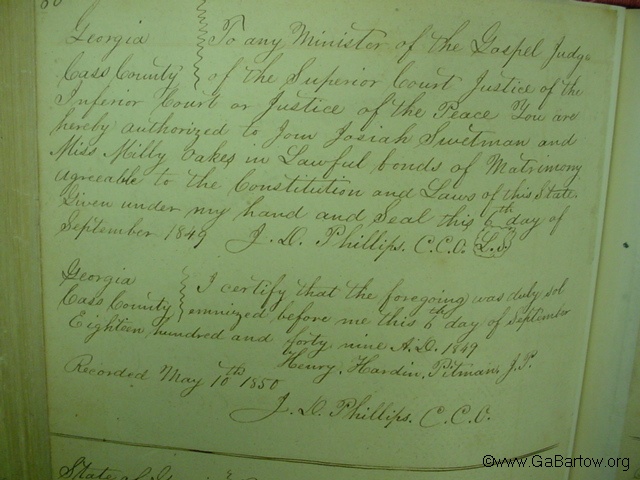 Georgia To any Minister of the Gospel Judge
Cass County of the Superior Court Justice of the
Inferior Court or Justice of the Peace You are
hereby authorized to Join Josiah Swetman and
Miss Milly Oakes in Lawful bonds of Matrimony
agreeable to the Constitution and Laws of this State.
Given under my hand and Seal this 6th day of
September 1849 J. D. Phillips. C.C.O. L.S.
Georgia I certify that the foregoing was duly sol
Cass County emnized before me this 6th day of September
Eighteen hundred and forty nine A.D. 1849
Henry. Hardin. Pitman, J.P.
Recorded May 10th 1850
J. D. Phillips. C.C.O.
State of
©www.GaBartow.org